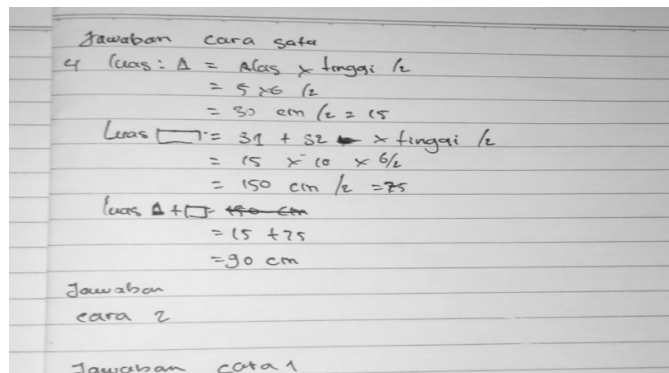 Jawaban cara satu
4 luas : Δ = Alas x tinggi /2
= 5 x 6 /2
= 30 cm /2 = 15
Luas ▭ = S1 + S2 x tinggi /2
= 15 x 10 x 6/2
= 150 cm /2 = 75
luas Δ + ▭ = 150 cm
= 15 + 75
= 90 cm
Jawaban
cara 2
Jawaban cara 1